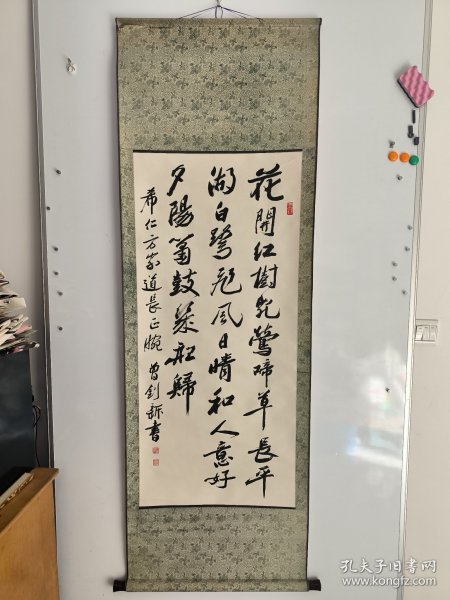 花開紅樹乱鶯啼草長平
湖白鹭飛風日晴和人意好
夕陽簫鼓幾船歸
希仁方家道長正腕 曾釗新書
孔夫子旧书网
www.kongfz.com